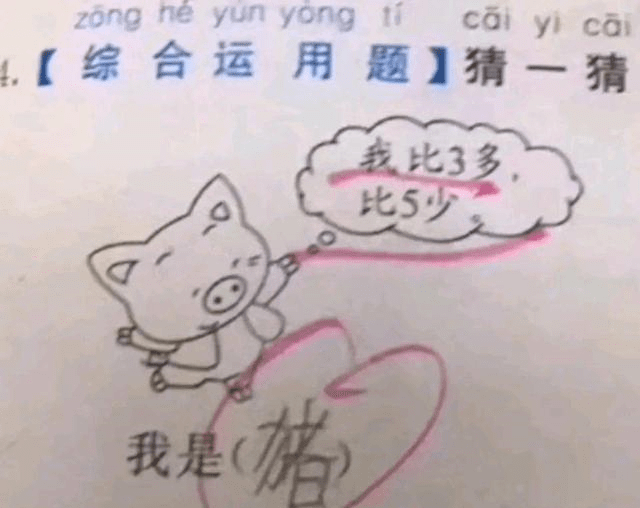 zōng hé yùn yòng tí cāi yi cāi
4.【综合运用题】猜一猜
我比3多,
比5少。
我是(猪)